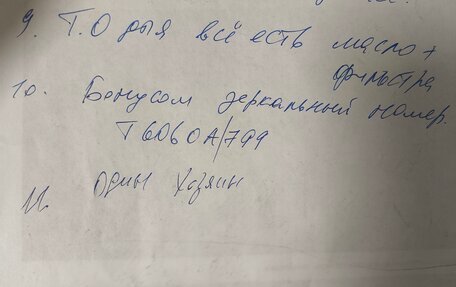 9. Т.О для всё есть масло +
фильтра
10. Бонусом зеркальный номер.
Т606ОА/799
11. Один Хозяин